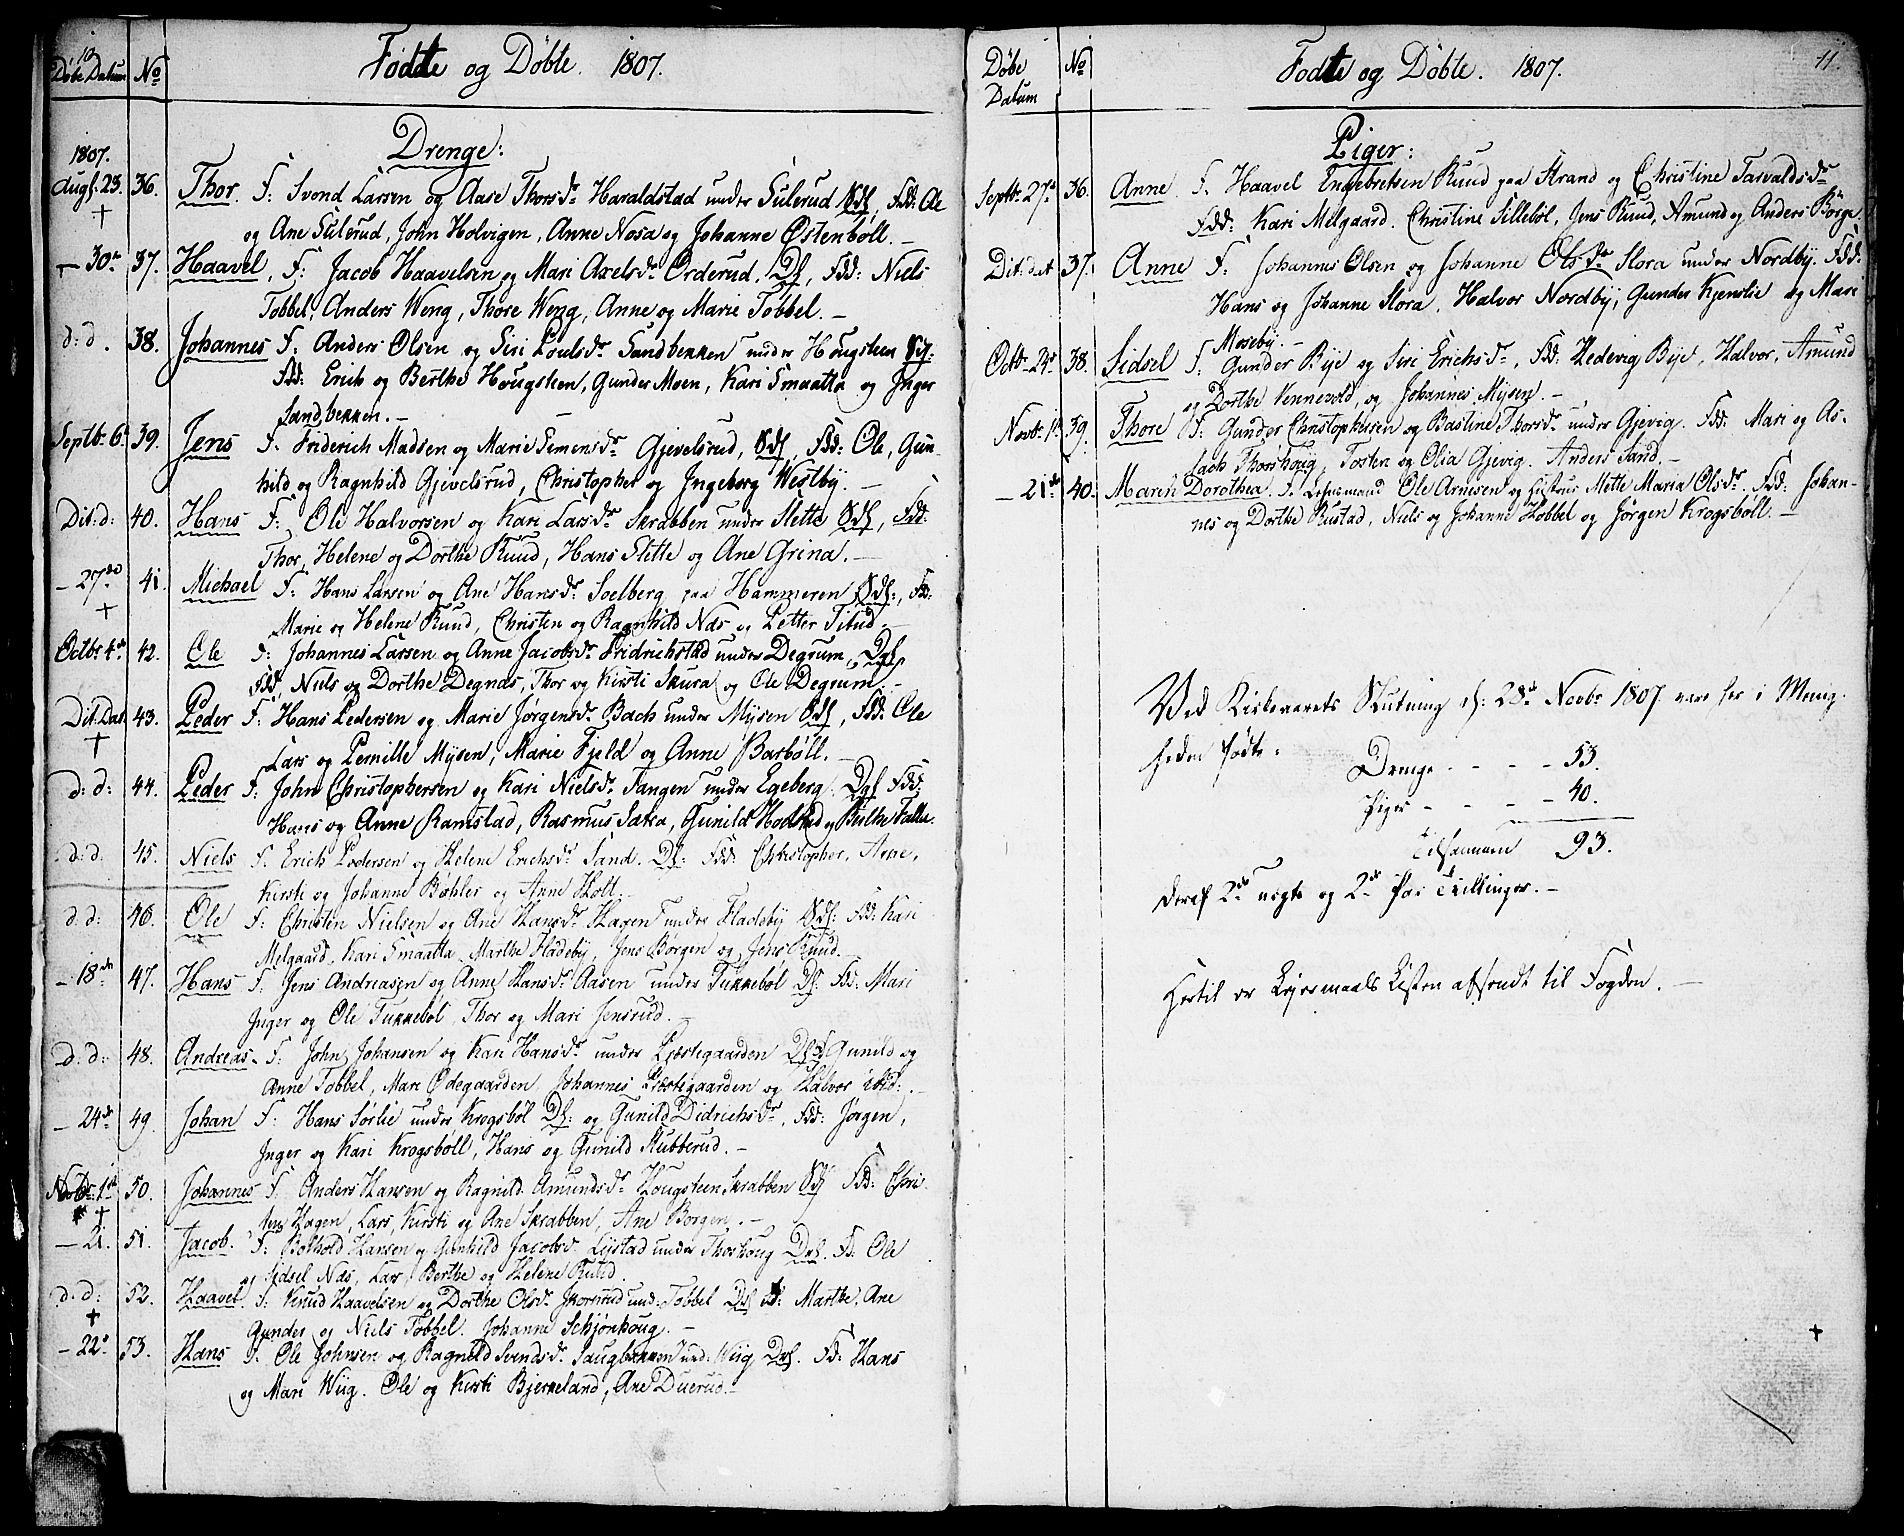 10
Døbe Datum No Fødte og Døbte. 1807.
Drenge:
1807.
Aug: 23. 36. Thor. F: Svend Larsen og Aase Thorsdr Haraldstad under Sulerud Fdd: Ole
og Ane Sulerud, John Holvigen, Anne Nosa og Johanne Østenbøll. –
– 30te 37. Haavel, F: Jacob Haavelsen og Mari Axelsdr Orderud, Fdd: Niels
Tobbel, Anders Weng, Thore Weng, Anne og Marie Tøbbel. –
d: d. 38. Johannes F: Anders Olsen og Siri Poulsdr Sandbekken under Hougsteen
Fdd: Erich og Berthe Hougsteen, Gunder Moen, Kari Smaatta og Inger
Sandbekken. –
Septbr 6. 39. Jens F: Friderich Madsen og Marie Simensdr Gjevelsrud, Fdd: Ole, Gun-
hild og Ragnhild Gjevelsrud, Christopher og Ingeborg Westby. –
Dit: d: 40. Hans F: Ole Halvorsen og Kari Larsdr Skrabben under Slette Fdd:
Thor, Helene og Dorthe Ruud, Hans Slette og Ane Grina. –
– 27de 41. Michael F: Hans Larsen og Ane Hansdr Soelberg paa Hammeren Fdd:
Marie og Helene Ruud, Christen og Ragnhild Nas og Petter Titud. –
Octbr 4de 42. Ole F: Johannes Larsen og Anne Jacobsdr Fridrichstad under Degrum,
Fdd, Niels og Dorthe Degnas, Thor og Kirsti Skura og Ole Degrum. –
Dit: Dat 43. Peder F: Hans Pedersen og Marie Jørgensdr Bach under Mysen Fdd: Ole
Lars og Pernille Mysen, Marie Fjeld og Anne Barbøll. –
d: d: 44. Peder F: John Christophersen og Kari Nielsdr Tangen under Egeberg. Fdd:
Hans og Anne Ramstad, Rasmus Satra, Gunild og Berthe
d: d. 45. Niels F. Erich Pedersen og Helene Erichsdr Sand. Fdd: Christopher, Arne,
Kirsti og Johanne Bøhler og Anne Holt. –
d: d: 46. Ole F: Christen Nielsen og Ane Hansdr Hagen under Fladeby Fdd: Kari
Melgaard, Kari Smaatta, Marthe Fladeby, Jens Børgen og Jens Ruud. –
– 18de 47. Hans F: Jens Andreasen og Anne Hansdr Aasen under Tukkebøl Fdd: Mari
Inger og Ole Tukkebøl, Thor og Mari Jensrud. –
d: d: 48. Andreas F: John Johansen og Kari Hansdr under Præstegaarden Gunild og
Anne Tobbel, Mari Ødegaarden, Johannes Præstegaarden og Halvor ibid: –
– 24de 49. Johan F: Hans Sørlie under Krogsbøl og Gunild Didrichsdr, Fdd: Jørgen,
Inger og Kari Krogsbøll, Hans og Gunild Stubberud. –
Novbr: 1ste 50. Johannes F: Anders Hansen og Ragnild Amundsdr Hougsteen Skrabben Fdd: Chri
Hagen, Lars, Kirsti og Ane Skrabben, Ane Borgen. –
– 21. 51. Jacob. F: Hansen og Gunhild Jacobsdr under Thorshoug Fd: Ole
Sidsel Nas, Lars, Berthe og Helene Ruud.
d: d: 52. Haavel F: Knud Haavelsen og Dorthe Olsdr und: Tobbel Fd: Marthe, Ane
Gunder og Niels Tobbel. Johanne Schjønhoug. –
– 22de 53. Hans F: Ole Johnsen og Ragnild Svendsdr Saugbakken und: Wiig Fd: Hans
og Mari Wiig. Ole og Kirsti Bjerkeland, Ane Duerud. –
11.
Døbe Datum No Fødte og Døbte. 1807.
Piger:
Septbr 27de 36. Anne F. Haavel Engebretsen Ruud paa Strand og Christine Tarvaldsdr
Fdd: Kari Melgaard. Christine Sillebøl, Jens Ruud, Amund og Anders Børge.
Dit: dat 37. Anne F: Johannes Olsen og Johanne Olsdr Slora under Nordby. Fdd:
Hans og Johanne Slora, Halvor Nordby, Gunder Kjenslie og Mari
Moseby. –
Octb – 24de 38. Sidsel F: Gunder Bye og Siri Erichsdr, Fdd: Hedevig Bye, Halvor, Amund
og Dorthe Kennevold, og Johannes Mysen. –
Novbr 1ste 39. Thore F: Gunder Christophersen og Bastine Thorsdr under Gjevig. Fdd: Mari og As-
lach Thorshoug, Tosten og Olia Gjevig. Anders Sand. –
– 21de 40. Maren Dorothea. F: Lehnsmand Ole Arnesen og Hustrue Mette Maria Olsdr. Fdd: Johan-
nes og Dorthe Rustad, Niels og Johanne Hobbel og Jørgen Krogsbøll. –
Ved Kirkeaarets Slutning d: 28de Novbr 1807 vare her i Menig-
heden fødte:
Drenge - - - - 53.
Piger - - - - 40.
Tilsammen 93.
Deraf 2de uægte og 2de Par Tvillinger. –
Hertil er Lejermaals Listen afsendt til Fogden. –